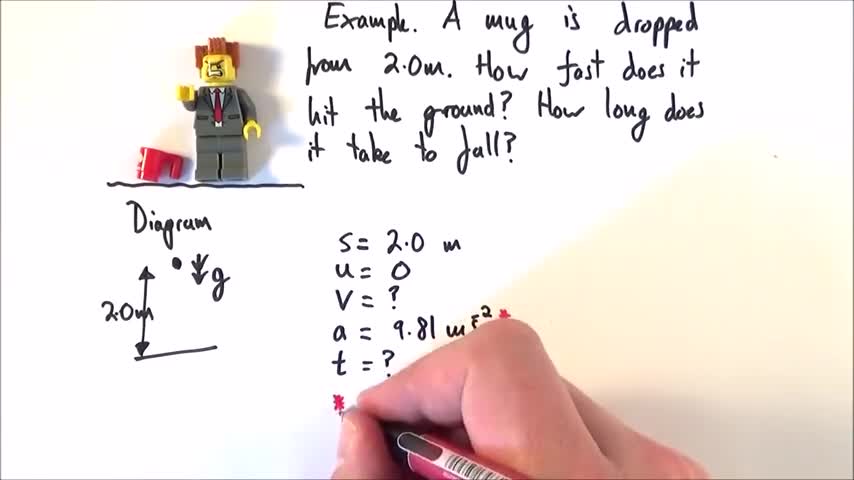 Example. A mug is dropped
from 2.0m. How fast does it
hit the ground? How long does
it take to fall?
Diagram
g
2.0m
s = 2.0 m
u = 0
v = ?
a = 9.81 ms⁻² *
t = ?
*